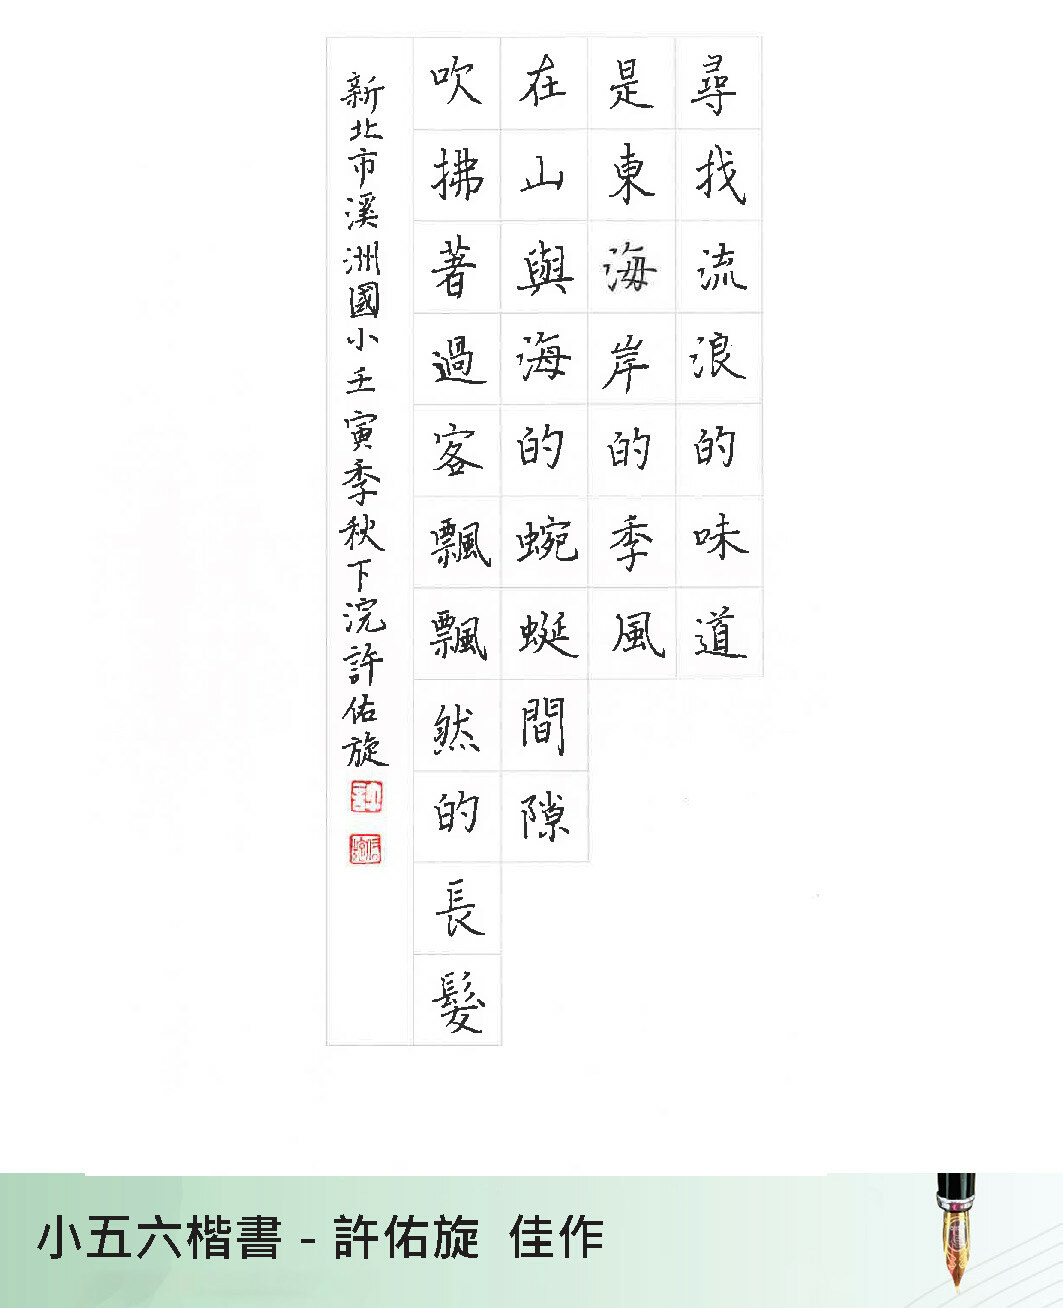 尋找流浪的味道
是東海岸的季風
在山與海的蜿蜒間隙
吹拂著過客飄飄然的長髮
新北市溪洲國小壬寅季秋下浣許佑旋
小五六楷書 - 許佑旋 佳作